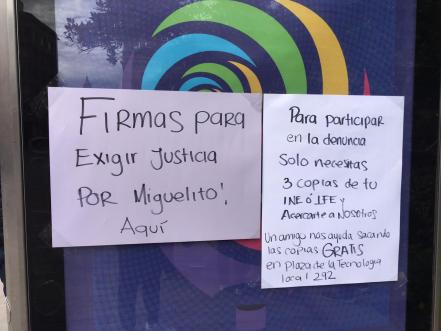 FIRMAS PARA
Exigir Justicia
POR Miguelito!
Aquí
Para participar
en la denuncia
Solo necesitas
3 copias de tu
INE ó IFE y
Acercarte a Nosotros
Un amigo nos ayuda sacando
las copias GRATIS
en plaza de la Tecnologia
local 292